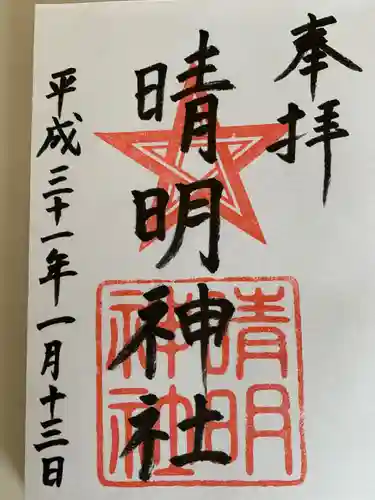 奉拝
晴明神社
晴明
神社
平成三十一年一月十三日